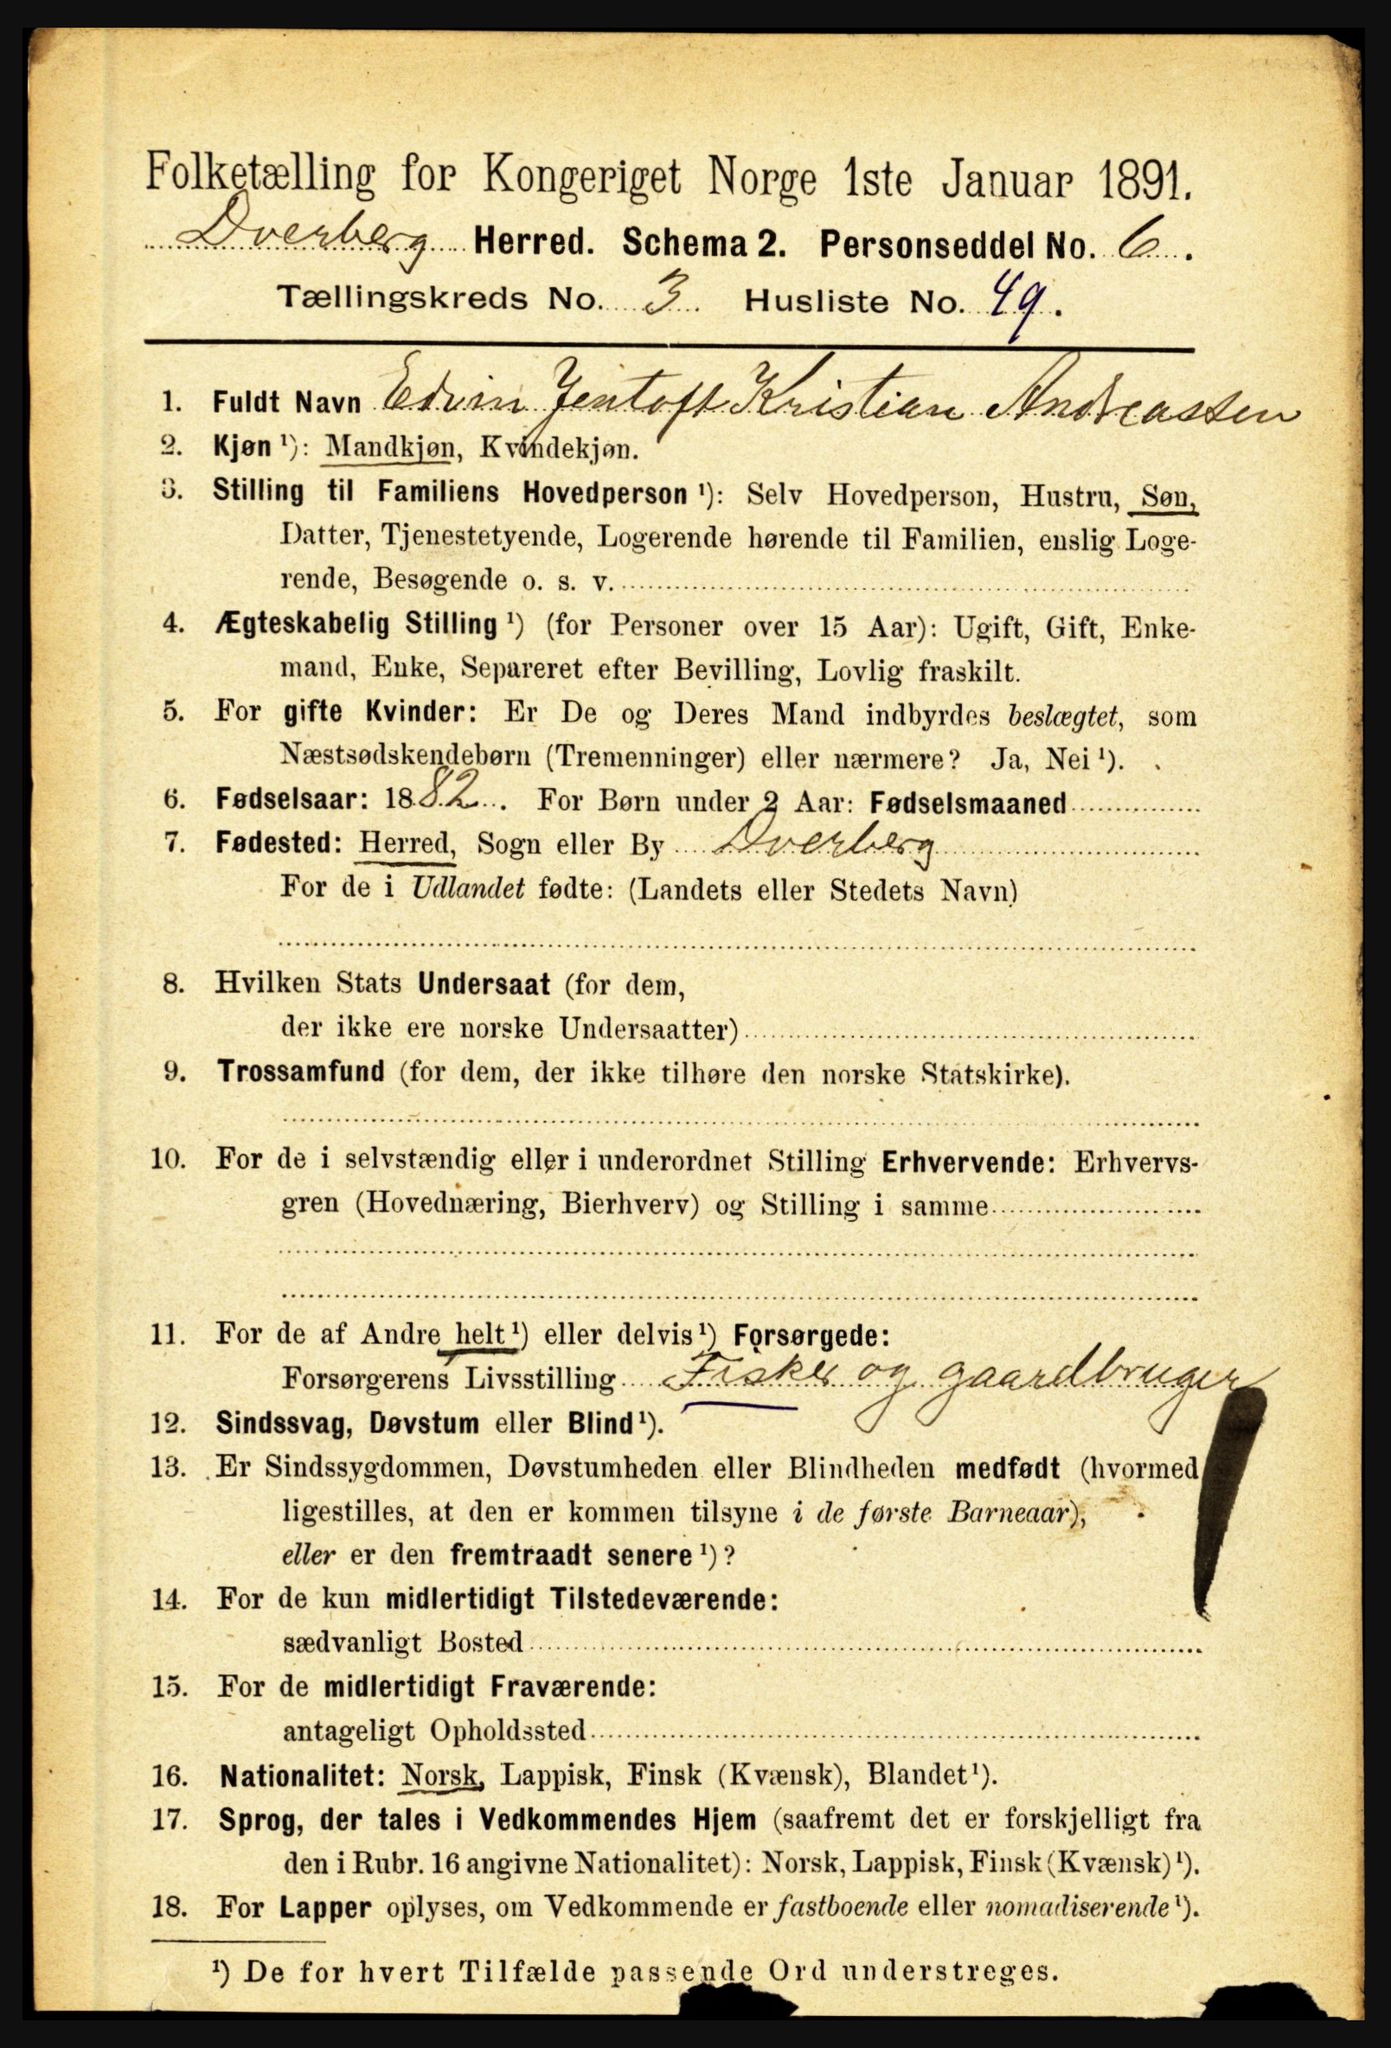 Folketælling for Kongeriget Norge 1ste Januar 1891.
Dverberg Herred. Schema 2. Personseddel No. 6.
Tællingskreds No. 3 Husliste No. 49.
1. Fuldt Navn Edvin Jentoft Kristian Andreassen
2. Kjøn ¹): Mandkjøn, Kvindekjøn.
3. Stilling til Familiens Hovedperson ¹): Selv Hovedperson, Hustru, Søn,
Datter, Tjenestetyende, Logerende hørende til Familien, enslig Loge-
rende, Besøgende o. s. v.
4. Ægteskabelig Stilling ¹) (for Personer over 15 Aar): Ugift, Gift, Enke-
mand, Enke, Separeret efter Bevilling, Lovlig fraskilt.
5. For gifte Kvinder: Er De og Deres Mand indbyrdes beslægtet, som
Næstsødskendebørn (Tremenninger) eller nærmere? Ja, Nei ¹).
6. Fødselsaar: 1882. For Børn under 2 Aar: Fødselsmaaned
7. Fødested: Herred, Sogn eller By Dverberg
For de i Udlandet fødte: (Landets eller Stedets Navn)
8. Hvilken Stats Undersaat (for dem,
der ikke ere norske Undersaatter)
9. Trossamfund (for dem, der ikke tilhøre den norske Statskirke).
10. For de i selvstændig eller i underordnet Stilling Erhvervende: Erhvervs-
gren (Hovednæring, Bierhverv) og Stilling i samme
11. For de af Andre helt ¹) eller delvis ¹) Forsørgede:
Forsørgerens Livsstilling Fisker og gaardbruger
12. Sindssvag, Døvstum eller Blind ¹).
13. Er Sindssygdommen, Døvstumheden eller Blindheden medfødt (hvormed
ligestilles, at den er kommen tilsyne i de første Barneaar),
eller er den fremtraadt senere ¹)?
14. For de kun midlertidigt Tilstedeværende:
sædvanligt Bosted
15. For de midlertidigt Fraværende:
antageligt Opholdssted
16. Nationalitet: Norsk, Lappisk, Finsk (Kvænsk), Blandet ¹).
17. Sprog, der tales i Vedkommendes Hjem (saafremt det er forskjelligt fra
den i Rubr. 16 angivne Nationalitet): Norsk, Lappisk, Finsk (Kvænsk) ¹).
18. For Lapper oplyses, om Vedkommende er fastboende eller nomadiserende ¹).
¹) De for hvert Tilfælde passende Ord understreges.